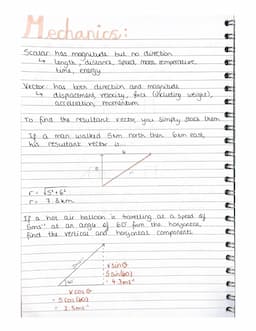 Mechanics:
Scalar has magnitude but no direction
↳ length, distance, speed, mass, temperature,
time, energy
Vector has both direction and magnitude
↳ displacement, velocity, force (including weight),
acceleration, momentum
To find the resultant vector you simply stack them
If a man walked 5km north then 6km east,
his resultant vector is
6
r = √5²+6²
r = 7.8km
If a hot air balloon is travelling at a speed of
5ms⁻¹ at an angle of 60° from the horizontal,
find the vertical and horizontal components
v sin θ
5 sin(60)
= 4.3ms⁻¹
60°
v cos θ
= 5 cos(60)
= 2.5ms⁻¹